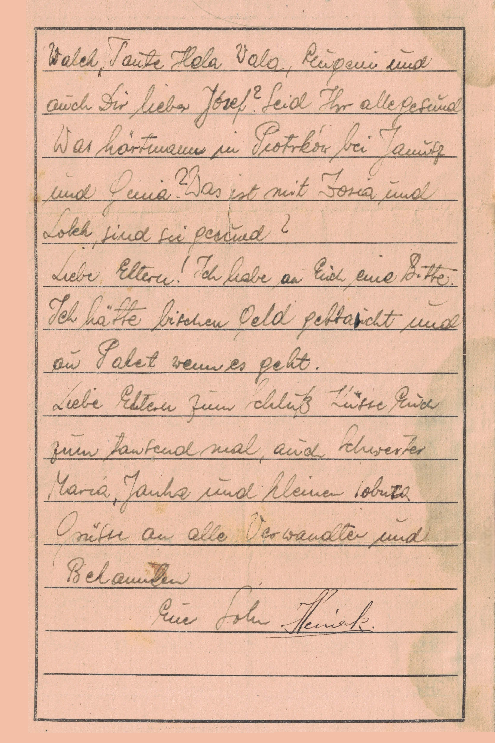 Walch, Tante Hela Vala, Eugeni und
auch Dir lieber Josef? Seid Ihr alle gesund
Was hört mann in Piotrków bei Janusz
und Genia? Was ist mit Zosia und
Lolek, sind sie gesund?
Liebe Eltern! Ich habe an Eich eine Bitte.
Ich hätte bischen Geld gebraucht und
ein Paket wenn es geht.
Liebe Eltern zum schluß Küsse Euch
zum tausend mal, auch Schwester
Maria, Janka und kleinen
Grüsse an alle Verwandten und
Bekannten
Euer Sohn Heniek.